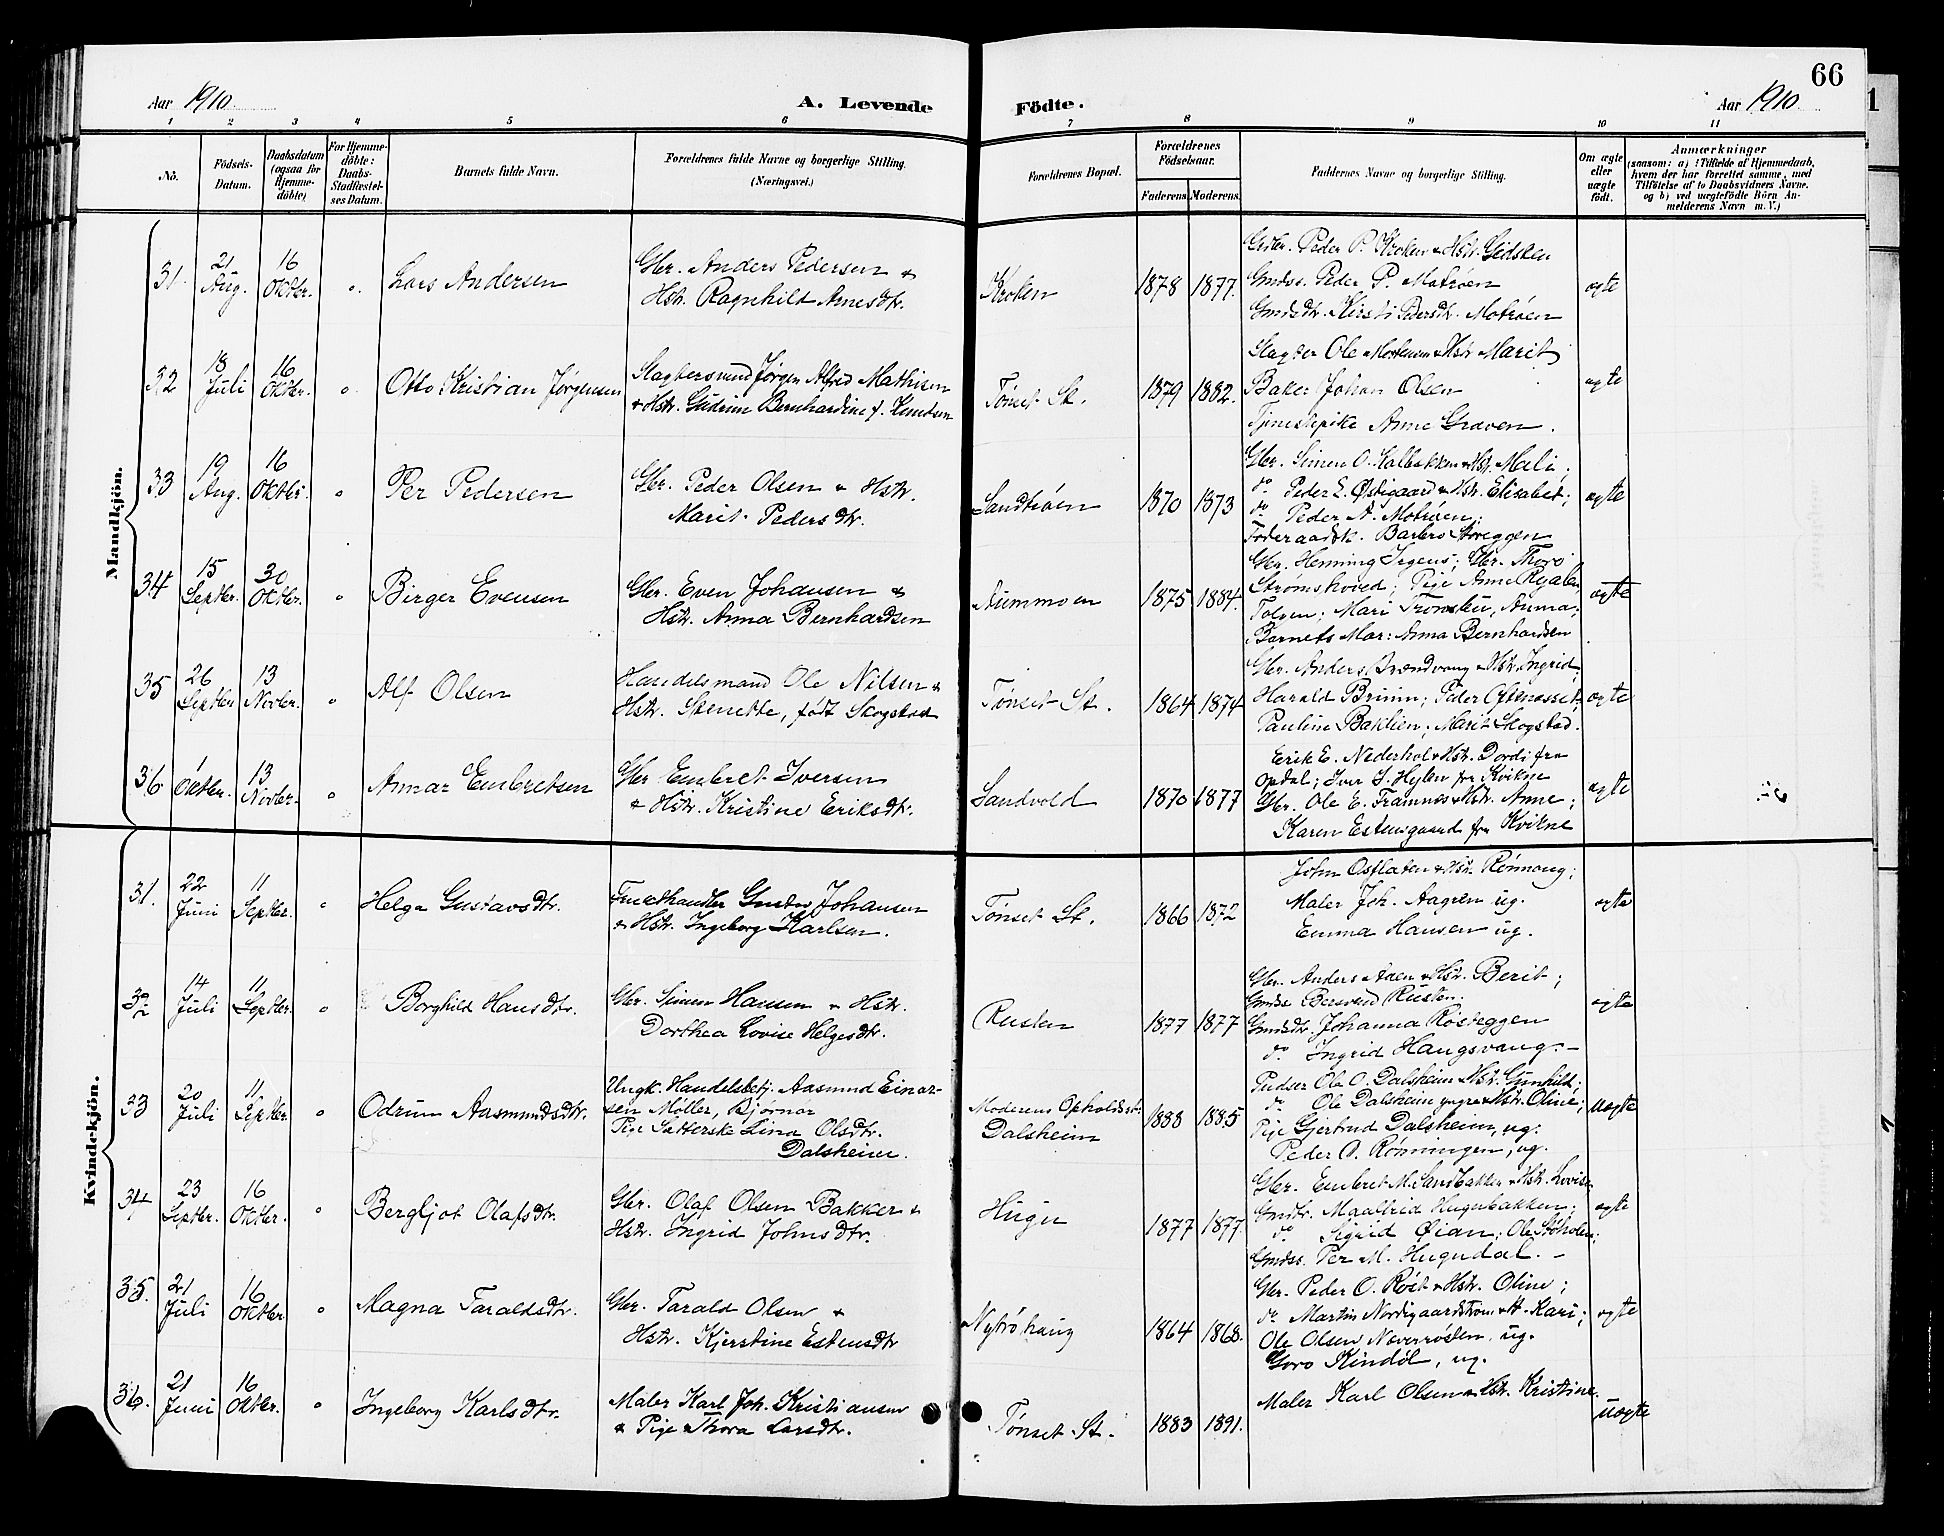 66
Aar 1910.
A. Levende Födte.
Aar 1910.
1 2 3 4 5 6 7 8 9 10 11
No.
Födsels-
Datum.
Daabsdatum
(ogsaa for
Hjemme-
döbte)
For Hjemme-
döbte:
Daabs-
Stadfæstel-
ses Datum.
Barnets fulde Navn.
Forældrenes fulde Navne og borgerlige Stilling.
(Næringsvei.)
Forældrenes Bopæl.
Forældrenes
Födselsaar.
Faderens Moderens
Faddernes Navne og borgerlige Stilling.
Om ægte
eller
uægte
födt.
Anmærkninger
(saasom: a) i Tilfælde af Hjemmedaab,
hvem der har forrettet samme, med
Tilföielse af to Daabsvidners Navne.
og b) ved uægtefödte Börn An-
melderens Navn m. V.)
Mandkjön.
31.
21
Aug.
16
Oktbr.
"
Lars Andersen
Gbr. Anders Pedersen &
Hstr. Ragnhild Arnesdtr.
Kroken
1878
1877.
Gbr. Peder P. Kroken & Hstr. Gjdsken
Gmdss. Peder P. Motrøen
Gmdsdtr. Kirsti Pedersdtr. Motrøen
ægte
32
18
Juli
16
Oktbr.
"
Otto Kristian Jørgensen
Slagtersvend Jørgen Alfred Mathisen
& Hstr. Gudrun Bernhardine f. Knudsen
Tønset St.
1879
1882.
Slagter Ole Mortensen & Hstr Marit
Baker Johan Olsen
Tjenestepike Anne Graven.
ægte
33
19
Aug.
16
Oktbr.
"
Per Pedersen
Gbr. Peder Olsen & Hstr.
Marit Pedersdtr.
Sandtrøen
1870
1873
Gbr. Simen O. Kolbakken & Hstr. Mali;
do Peder E. Østigaard & Hstr. Elisabet;
do Peder A. Motrøen;
Føderaadsk. Barbro Storeggen
ægte
34
15
Septbr.
30
Oktbr.
"
Birger Evensen
Gbr. Even Johansen &
Hstr. Anna Bernhardsen
Aummoen
1875
1884.
Gbr. Henning Irgens; Gbr. Thoro
Strømshoved; Pige Anne Ryalen
Tolgen; Mari Tronslien, Aumma;
Barnets Mor: Anna Bernhardsen
ægte
35
26
Septbr.
13
Novbr.
"
Alf Olsen
Handelsmand Ole Nilsen &
Hstr. Stenette, født Skogstad
Tønset St.
1864
1874
Gbr. Anders Brændvang & Hstr. Ingrid;
Harald Bruun; Peder Oftenæsset;
Pauline Baklien; Marit Skogstad.
ægte
36
1
Oktbr.
13
Novbr.
"
Annar Embretsen
Gbr Embret Iversen
& Hstr. Kristine Eriksdtr.
Sandvold
1870
1877
Erik E. Nederhol & Hstr. Dordi fra
Opdal; Iver I. Hylen fr Kvikne
Gbr. Ole E. Framnes & Hstr. Anne;
Karen Estensgaard fra Kvikne
ægte
Kvindekjön.
31.
22
Juni
11
Septbr.
"
Helga Gustavsdtr.
Gustav Johansen
& Hstr. Ingeborg Karlsen.
Tønset St.
1866
1872
John Osflaten & Hstr. Rønnaug;
Maler Joh. Aagren ug.
Emma Hansen ug.
ægte
32
14
Juli
11
Septbr.
"
Borghild Hansdtr.
Gbr. Simen Hansen & Hstr.
Dorthea Lovise Helgesdtr.
Rusten
1877
1877
Gbr. Anders Aaen & Hstr. Berit;
Gmdss Bersvend Rusten.
Gmdsdtr. Johanna Røsteggen
do Ingrid Haugsvang. -
ægte
33
20
Juli
11
Septbr.
"
Odrun Aasmundsdtr.
Ungk. Handelsbetj. Aasmund Einar-
sen Møller, Bjørnor
Pige Sætterske Lina Olsdtr.
Dalsheim.
Moderens Opholdsst.:
Dalsheim
1888
1885
Pudser Ole O. Dalsheim & Hstr. Gunhild;
do Ole Dalsheim yngre & Hstr. Oline;
Pige Gjertrud Dalsheim, ug.
Peder O. Rønningen, ug.
Uægte
34
23
Septbr.
16
Oktbr.
"
Bergljot Olafsdtr.
Gbr. Olaf Olsen Bakken &
Hstr. Ingrid Johnsdtr.
Hugu
1877
1877.
Gbr. Embret M. Sandbakken & Hstr. Lovise
Gmdtr. Maalfrid Hugubakken;
do Sigrid Øian; Ole Støholen;
Gmdss. Per M. Hugudal. -
ægte
35.
21
Juli
16
Oktbr
"
Magna Taraldsdtr.
Gbr. Tarald Olsen &
Hstr. Kjerstine Estensdtr
Nytrøhaug
1864
1868.
Gbr. Peder O. Røst & Hstr. Oline;
do Martin Nordigaardstrøm & H. Kari;
Ole Olsen Neverrøsten, ug.
Goro Kindøl, ug.
ægte
36.
21
Juni
16
Oktbr.
"
Ingeborg Karlsdtr.
Maler Karl Joh. Kristiansen
& Pige Thora Larsdtr.
Tønset St.
1883
1891.
Maler Karl Olsen & Hstr. Kristine.
Uægte